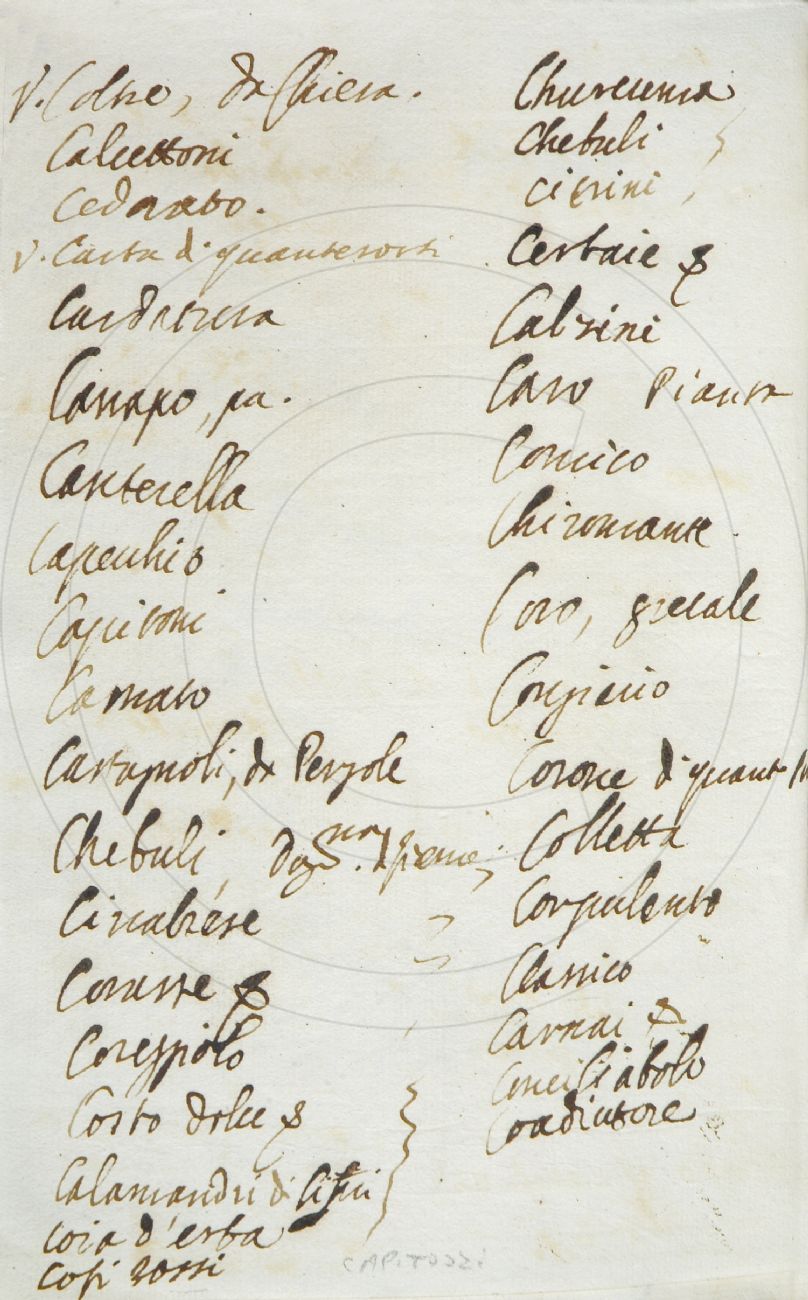 V. Coltre, da Chiesa.
Calcettoni
Cedrato.
V. Carta di quante sorti
Cardatura
Canapo, pa.
Canterella
Capecchio
Capitoni
Camato
Castagnoli, da Pergole
Chebuli,
Cinabrese
Corasse
Coreggiolo
Costo dolce
Calamandri di
coia d'erba
Cofi rossi
Churcuma
Chebuli
Citrini
Cerbaie
Calzini
Caro Pianta
Comico
Chiromante.
Coro, grecale
Corpiccio
Corone di quante
Colletta
Corpulento
Classico
Carnai
Conciliabolo
Coadiutore
CAPITOZZI